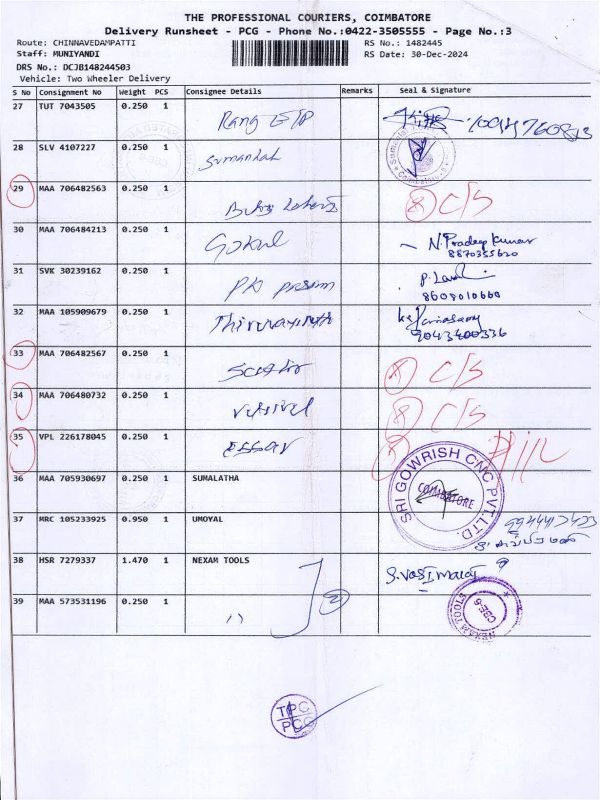 THE PROFESSIONAL COURIERS, COIMBATORE
Delivery Runsheet - PCG - Phone No.:0422-3505555 - Page No.:3
Route: CHINNAVEDAMPATTI RS No.: 1482445
Staff: MUNIYANDI RS Date: 30-Dec-2024
DRS No.: DCJB148244503
Vehicle: Two Wheeler Delivery
S No Consignment No Weight PCS Consignee Details Remarks Seal & Signature
27 TUT 7043505 0.250 1
28 SLV 4107227 0.250 1
29 MAA 706482563 0.250 1 C/S
30 MAA 706484213 0.250 1 Gokul N. Pradeep Kumar
8870355620
31 SVK 30239162 0.250 1
8608010660
32 MAA 105909679 0.250 1
9043400336
33 MAA 706482567 0.250 1 C/S
34 MAA 706480732 0.250 1 C/S
35 VPL 226178045 0.250 1 ESSAR
36 MAA 705930697 0.250 1 SUMALATHA
SRI GOWRISH CNC PVT.LTD.
COIMBATORE
37 MRC 105233925 0.950 1 UMOYAL
38 HSR 7279337 1.470 1 NEXAM TOOLS
39 MAA 573531196 0.250 1 ,, 2
NEXAM TOOLS
CBE-6
TPC
PCG